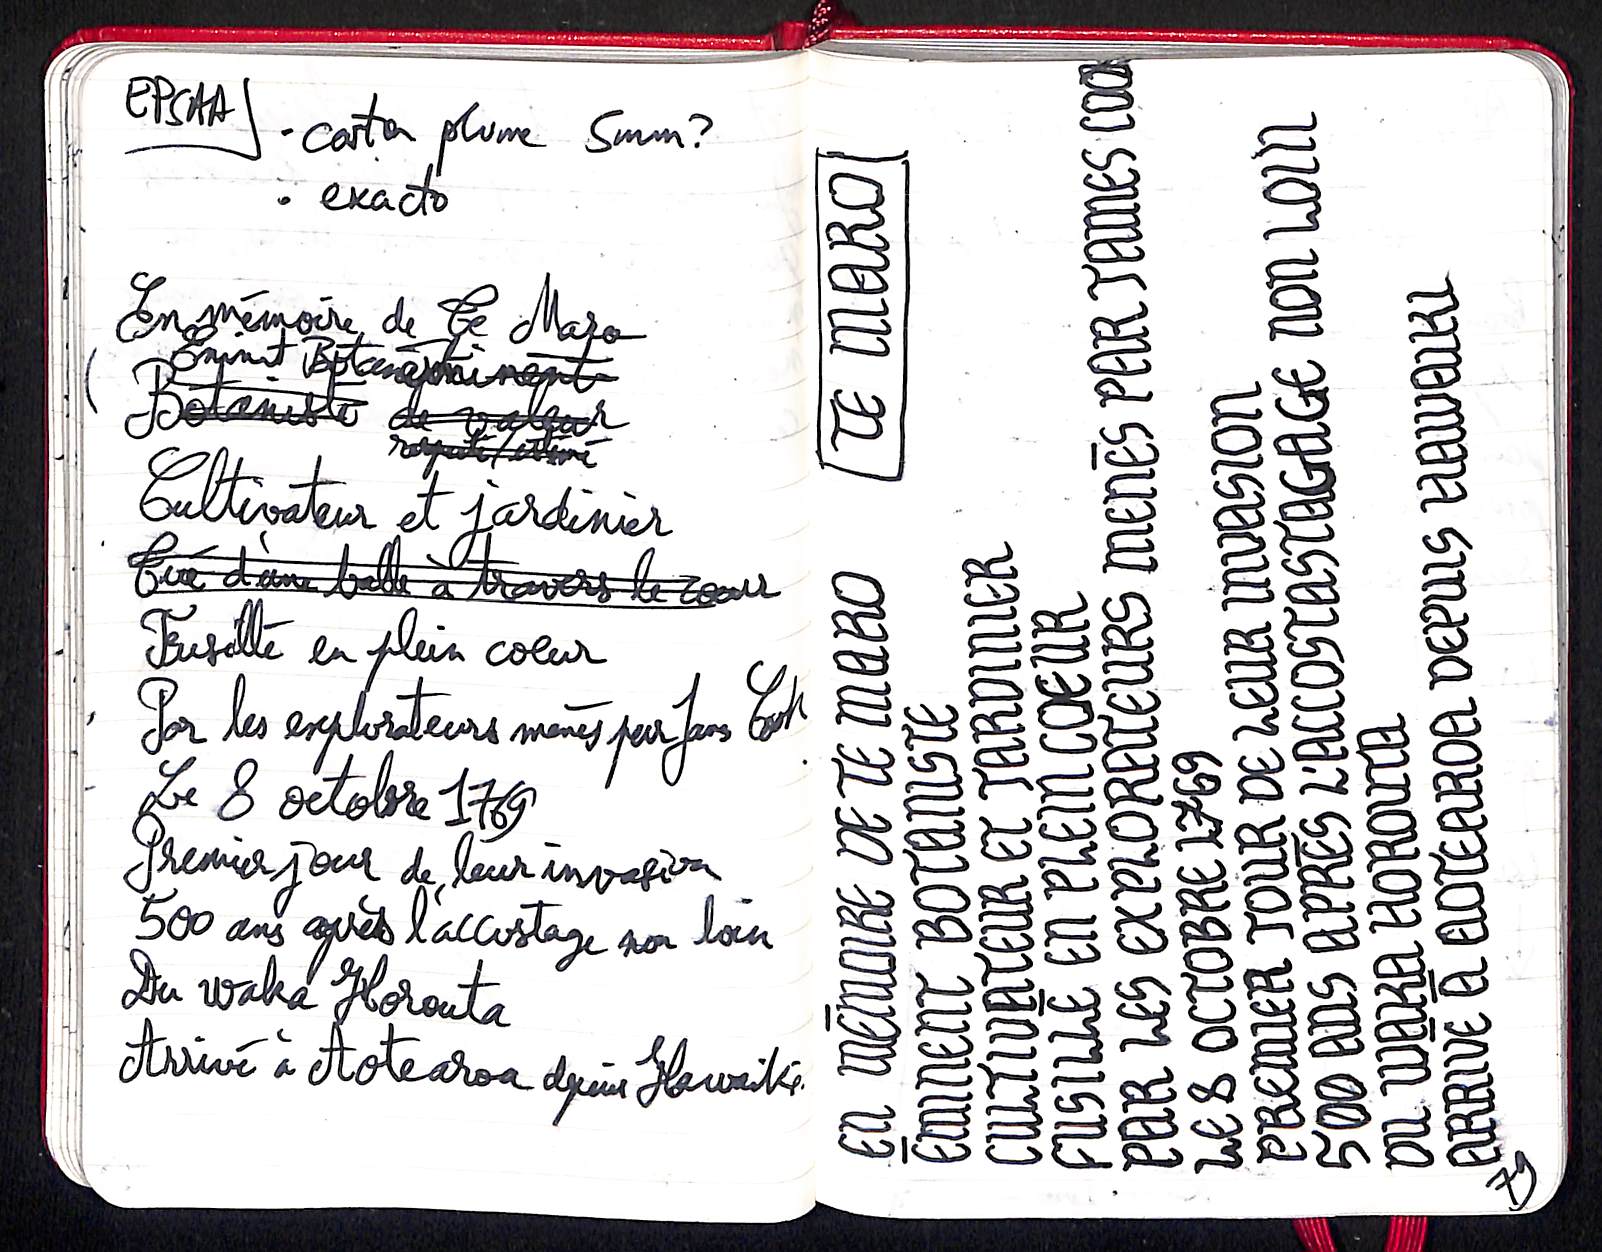 EPSAA
· carton plume 5mm?
· exacto
En mémoire de Te Maro
Eminent Botaniste eminent
Botaniste de valeur
respecté/estimé
Cultivateur et jardinier
Tué d'une balle à travers le coeur
Fusillé en plein coeur
Par les explorateurs menés par James Cook
Le 8 octobre 1769
Premier jour de leur invasion
500 ans après l'accostage non loin
Du waka Horouta
Arrivé à Aotearoa depuis Hawaiki.
TE MARO
EN MÉMOIRE DE TE MARO
ÉMINENT BOTANISTE
CULTIVATEUR ET JARDINIER
FUSILLÉ EN PLEIN COEUR
PAR LES EXPLORATEURS MENÉS PAR JAMES COOK
LE 8 OCTOBRE 1769
PREMIER JOUR DE LEUR INVASION
500 ANS APRÈS L'ACCOSTASTAGAGE NON LOIN
DU WAKA HOROUTA
ARRIVÉ À AOTEAROA DEPUIS HAWAIKI
79